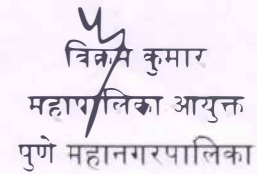 विक्रम कुमार
महापालिका आयुक्त
पुणे महानगरपालिका